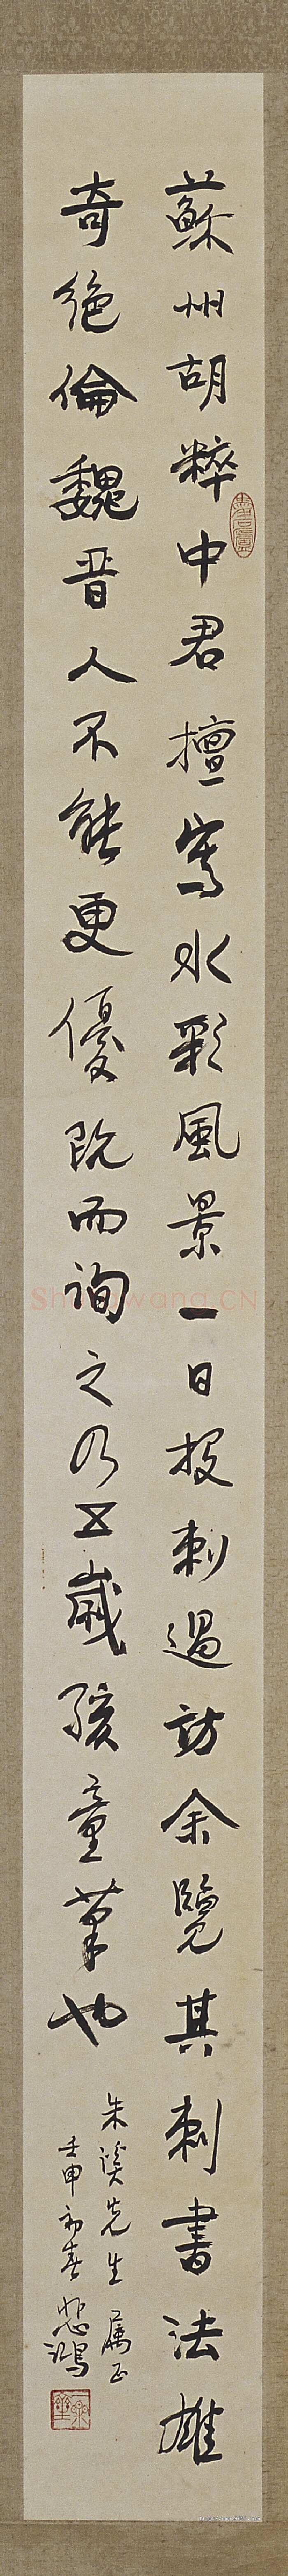 蘇州胡粹中君擅寫水彩風景一日投刺過訪余覽其刺書法雄
奇絕倫魏晉人不能更優既而詢之乃五歲孩童筆也
朱溪先生屬正
壬申初春悲鴻